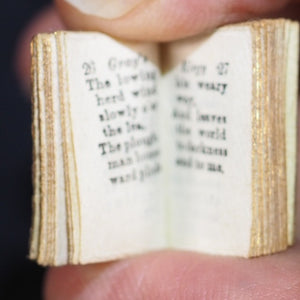 26 Gray's
The lowing
herd wind
slowly o'er
the lea,
The plough-
man home-
ward plods
Elegy 27
his weary
way,
And leaves
the world
to darkness
and to me,